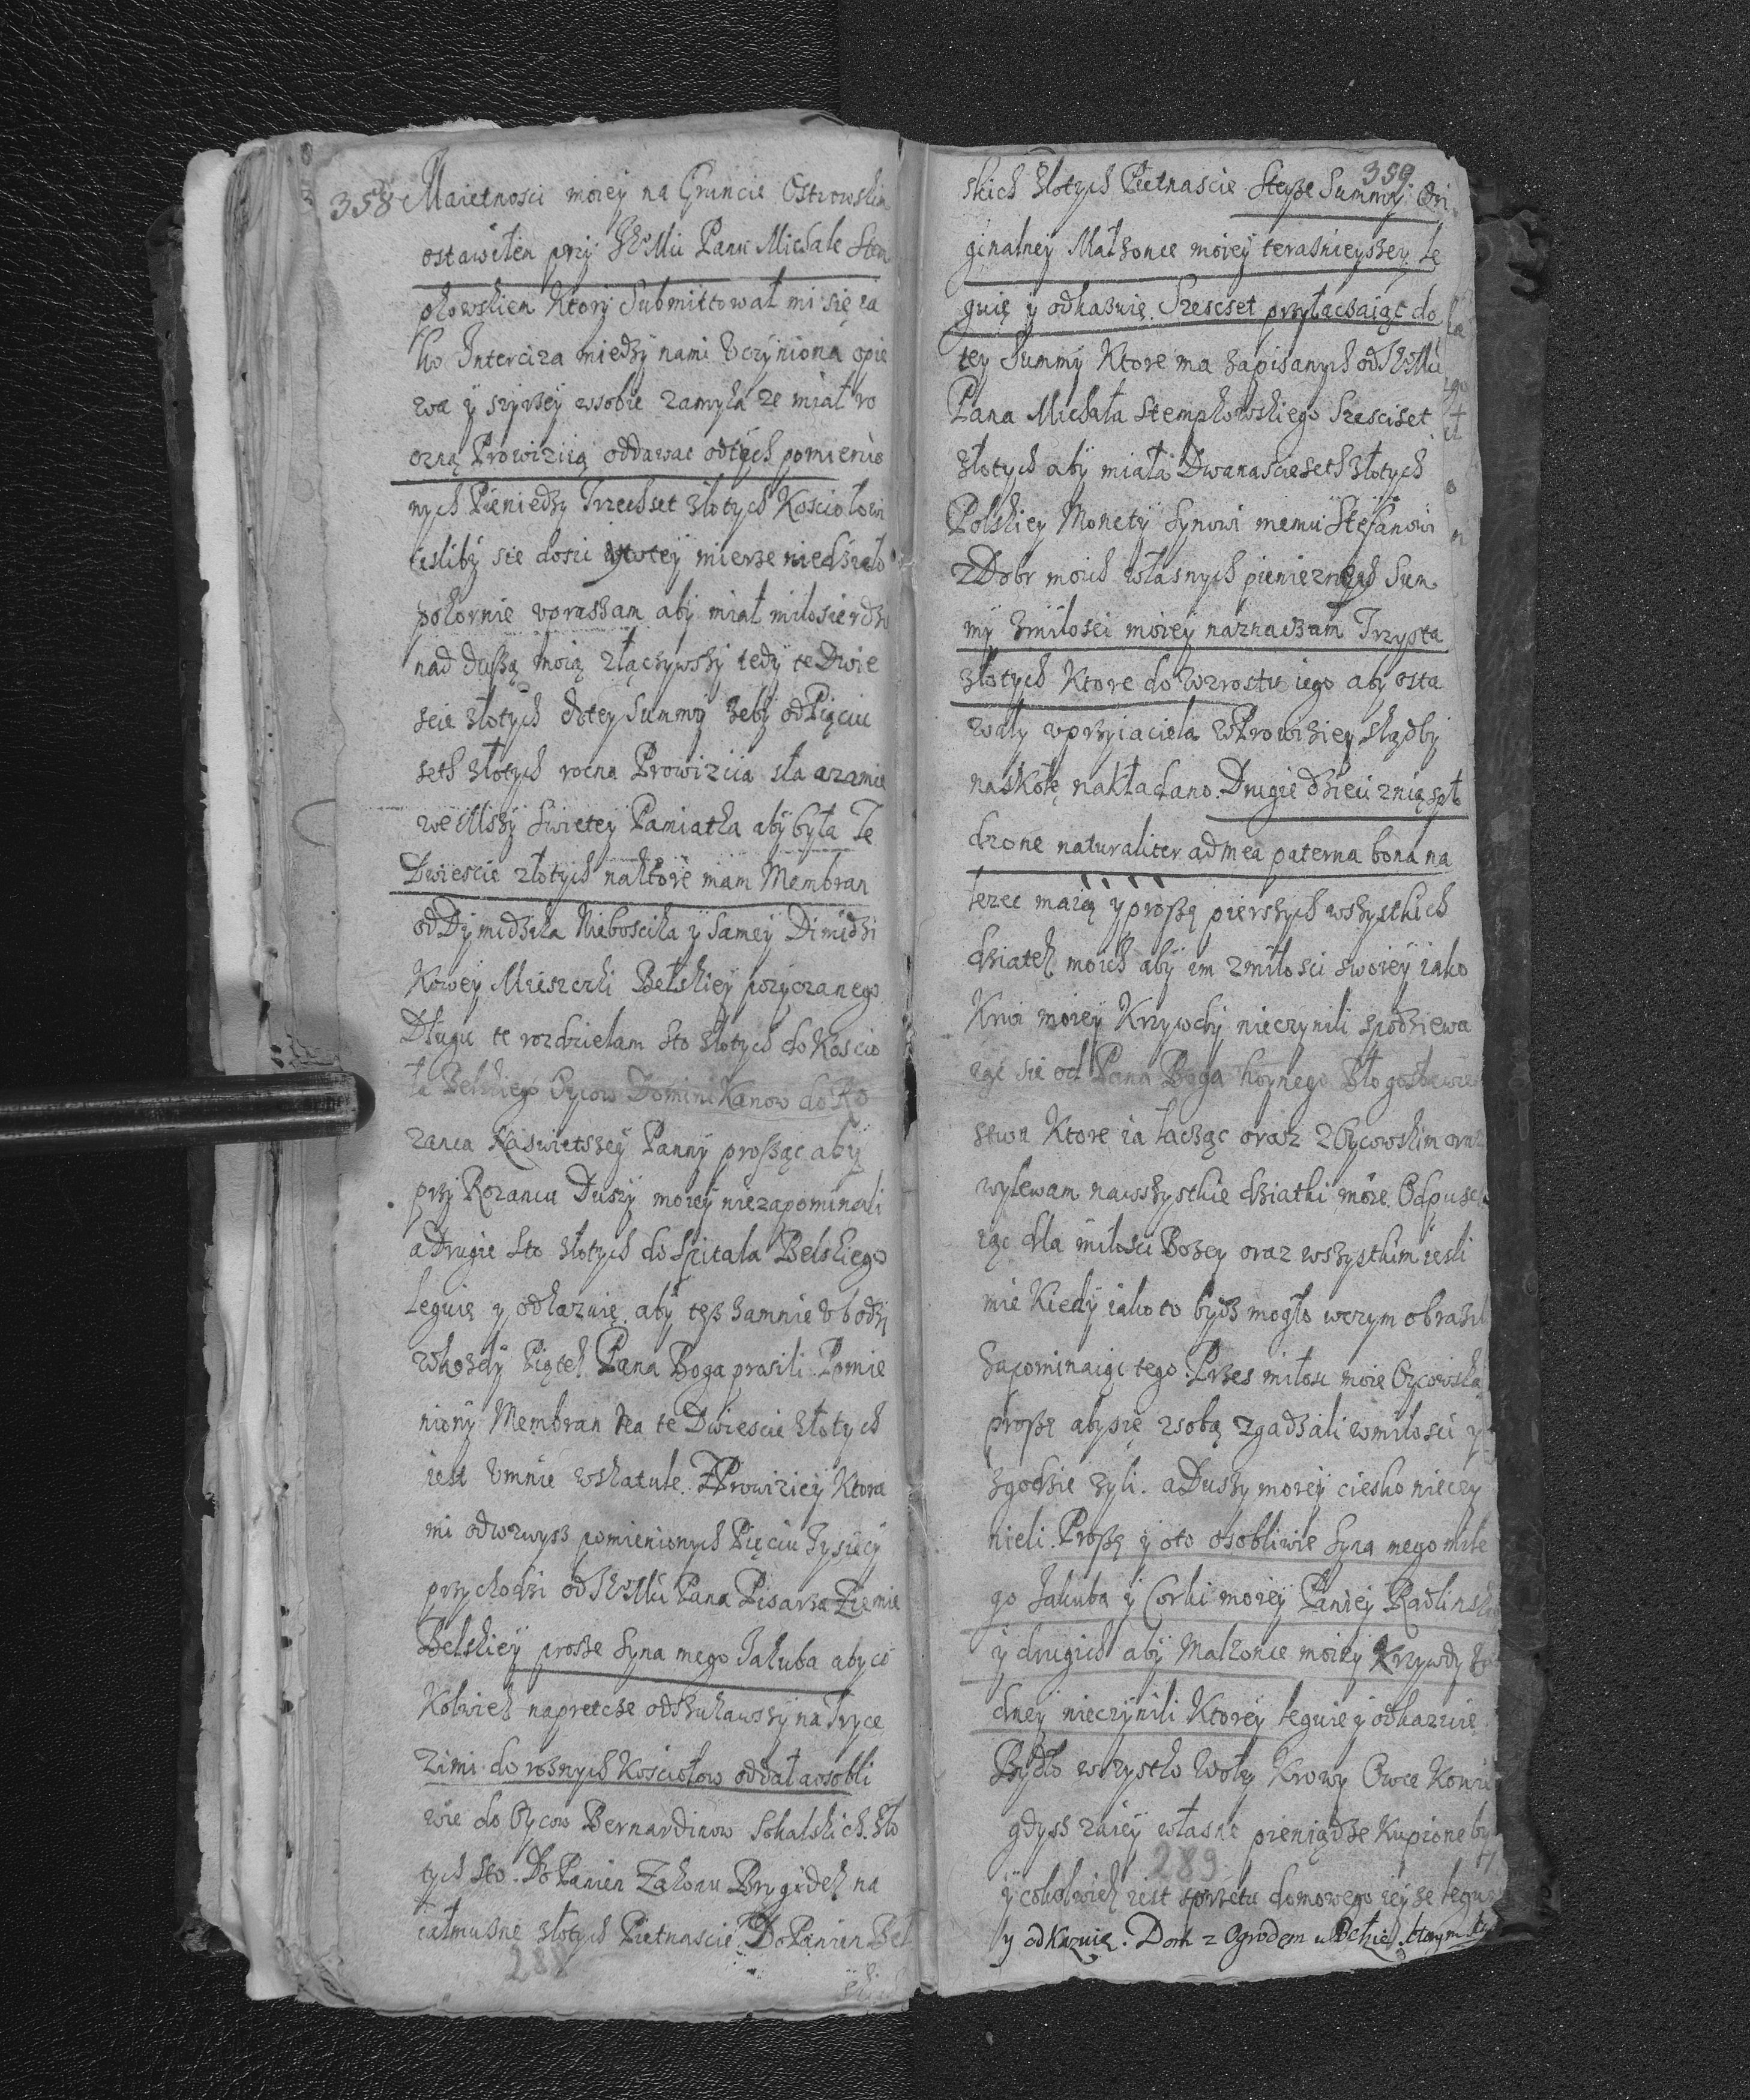 358 Maietnosci moiey na Gruncie Ostrowskim
ostawiłem przy JeMści Panu Michale Stem
pkowskiem Ktory Submittował mi się ia
ko Interciza miedzy nami Vczyniona opie
wa y szyrzey wsobie zamyka ze miał ro
czną Prowiziią oddawac odtych pomienio
nych Pieniedzy Trzechset złotych Kosciołowi
iesliby sie dosic wtey mierze niedziało
pokornie vpraszam aby miał miłosierdzie
nad duszą moią złączywszy tedy te Dwie
scie złotych dotey Summy zeby od Pięciu
seth złotych rocna Prowizcia sła azamie
we Mszy Swietey Pamiatka aby była Te
Dwiescie złotych naktore mam Membran
od Dymidzika Nieboscika y Samey Dimidzi
Kowey Mieszczki Bełskiey pozyczanego
Długu te rozdzielam Sto złotych do Koscio
ła Belskiego Oycow Dominikanow do Ro
zanca Naswietszey Panny prosząc aby
przy Rozancu Duszy moiey niezapominali
a Drugie Sto złotych do Spitala Belskiego
Leguię y odkazuię aby tesz zamnie Vbodzy
wkozdy Piątek Pana Boga prosili. Pomie
niony Membran na te Dwiescie złotych
iest Vmnie wskatule. Z Prowiziey Ktora
mi odwzwysz pomienionych Pięciu Tysięcy
przychodzi od JeMści Pana Pisarza Ziemie
Belskiey prosze Syna mego Jakuba aby co
Kolwiek napretce odzukawszy na Tryce
zimi do roznych Kosciołow oddał aosobli
wie do Oycow Bernardinow Sokalskich Zło
tych Sto. Do Panien Zakonu Brygidek na
iałmuzne złotych Pietnascie Do Panien Bel
288
skich
359
skich złotych Pietnascie Stesze Summy Ori
ginalney Małzonce moiey terasnieyszey le
guię y odkazuię Szescset przyłaczaiąc do
tey Summy Ktore ma zapisanych od JeMści
Pana Michała Stempkowskiego Szesciset
złotych aby miała Dwanascieseth złotych
Polskiey Monety Synowi memu Stefanowi
z Dobr moich własnych pienieznych Sum
my zmiłosci moiey naznaczam Trzysta
złotych Ktore do wzrostu iego aby osta
wały vprzyiaciela wProwiziey skądby
naskołę nakładano. Drugie dzieci znią spło
dzone naturaliter ad mea paterna bona na
lezec maią y proszę pierszych wszystkich
dziatek moich aby im zmiłosci swoiey iako
Krwi moiey Krzywdy nieczynili spodziewa
iąc sie od Pana Boga hoynego Błogosławie
stwa Ktore ia łacząc oraz z Oycowskim oraz
wylewam nawszystkie dziatki moie. Odpuscza
iąc dla miłosci Bozey oraz wszystkim iesli
mie Kiedy iako to bydz mogło wczym obrazil
Zapominaiąc tego. Przes miłosc moie Oycowską
proszę abysię zsobą zgadzali wmiłosci y
zgodzie zyli. a Duszy moiey ciesko nieczy
nieli. Proszę y oto osobliwie Syna mego miłe
go Jakuba y Corki moiey Paniey Radlinski
y drugich aby Małzonce moiey Krzywdy za
dney nieczynili Ktorey leguie y odkazuie
Bydło wszystko Woły Krowy Owce Konie
gdysz zaiey własne pieniądze Kupione by
289
y cokolwiek iest sprzetu domowego iey ze legu
y odkazuię. Dom z Ogrodem w Bełzie